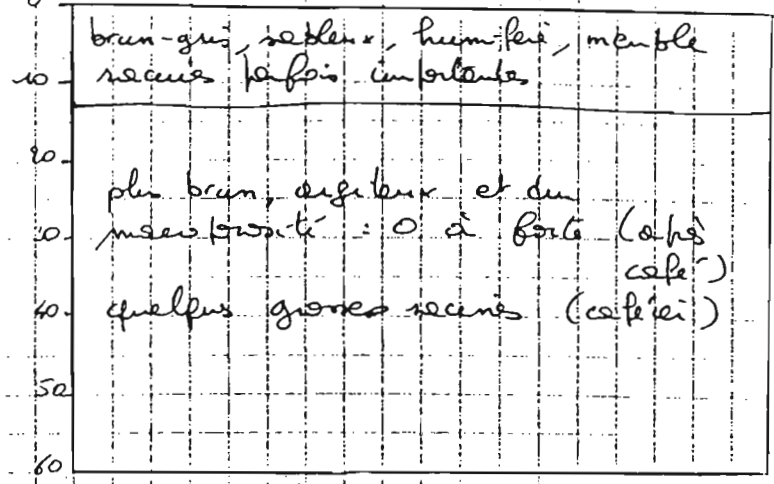 0
brun-gris, sableux, humifère, meuble
10 racines parfois importantes
20
plus brun, argileux et dur
30 macroporosité : 0 à forte (après
café)
40 quelques grosses racines (caféier)
50
60